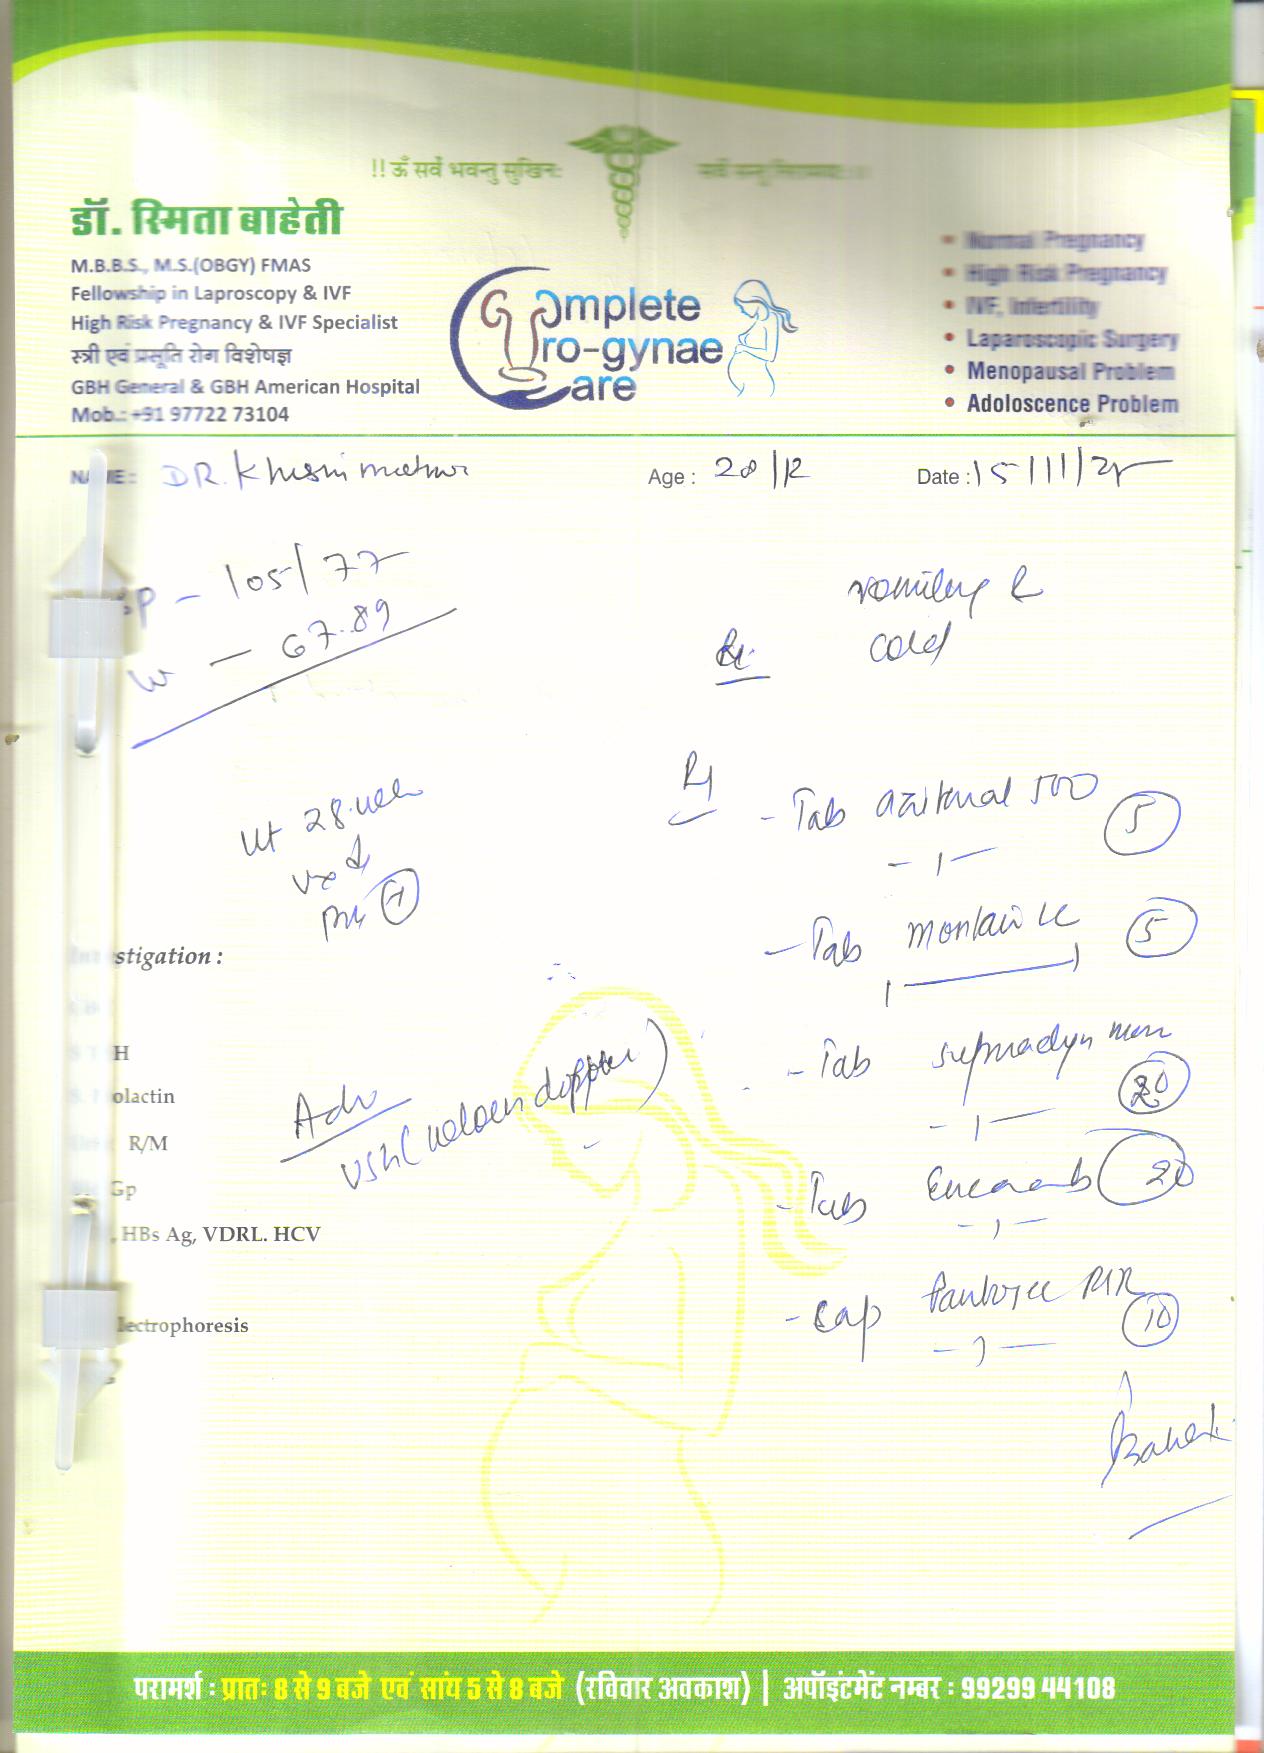 !! ॐ सर्वे भवन्तु सुखिनः सर्वे सन्तु निरामयाः !!
डॉ. स्मिता बाहेती
M.B.B.S., M.S.(OBGY) FMAS
Fellowship in Laproscopy & IVF
High Risk Pregnancy & IVF Specialist
स्त्री एवं प्रसूति रोग विशेषज्ञ
GBH General & GBH American Hospital
Mob.: +91 97722 73104
Complete
Pro-gynae
Care
• Normal Pregnancy
• High Risk Pregnancy
• IVF, Infertility
• Laparoscopic Surgery
• Menopausal Problem
• Adoloscence Problem
NAME : DR. Khushi
Age : 28
Date : 15/11/25
BP - 105/77
W - 67.89
vomiting &
cold
Ut 28
Tab 500 5
- 1 -
- Tab Montair LC 5
1 1
- Tab Supradyn 20
- 1 -
- Tab 20
- 1 -
- Cap 10
- 1 -
Investigation :
olactin
R/M
Gp
, HBs Ag, VDRL. HCV
lectrophoresis
Adv
USG ( doppler )
Baheti
परामर्श : प्रातः 8 से 9 बजे एवं सांय 5 से 8 बजे (रविवार अवकाश) | अपॉइंटमेंट नम्बर : 99299 44108